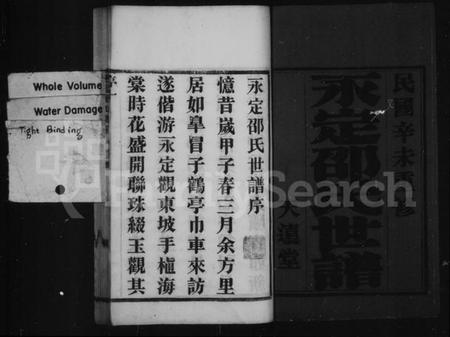 民國辛未重修
永定邵氏世譜
大蓮堂
永定邵氏世譜序
憶昔歲甲子春三月余方里
居如臯冒子鶴亭巾車來訪
遂偕游永定觀東坡手植海
棠時花盛開聯珠綴玉觀其
Whole Volume
Water Damage
Tight Binding
FamilySearch